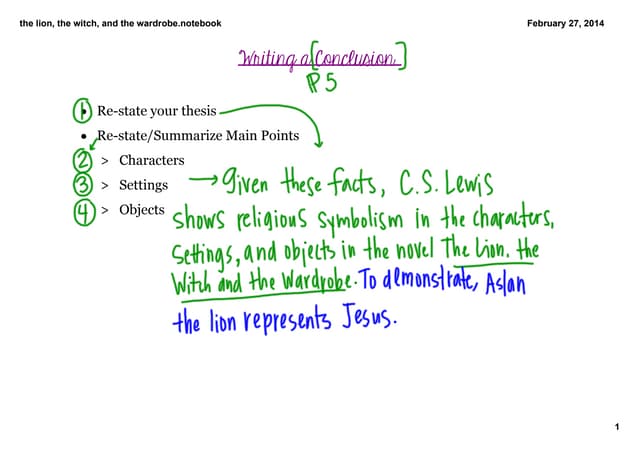 the lion, the witch, and the wardrobe.notebook
February 27, 2014
Writing a [Conclusion]
P5
1 Re-state your thesis
• Re-state/Summarize Main Points
2 > Characters
3 > Settings
4 > Objects
→ Given these facts, C.S. Lewis
shows religious symbolism in the characters,
settings, and objects in the novel The Lion, the
Witch and the Wardrobe. To demonstrate, Aslan
the lion represents Jesus.
1